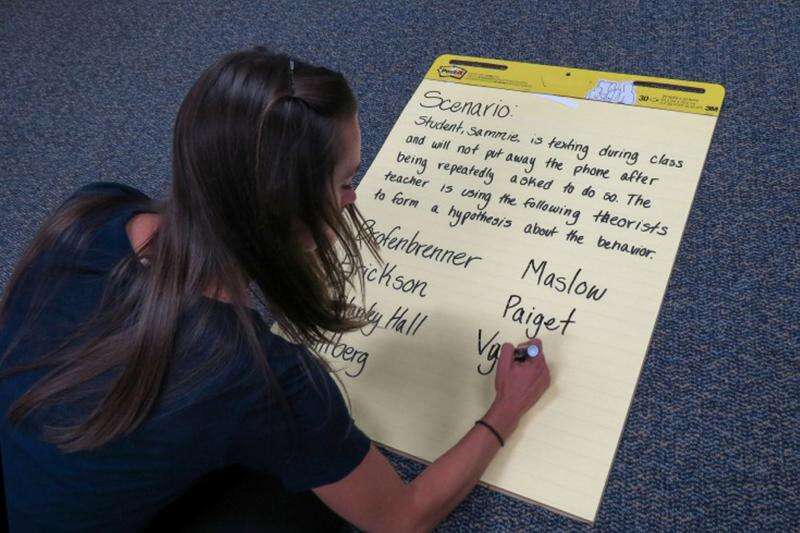 Post-it
30
3M
Scenario:
Student, Sammie, is texting during class
and will not put away the phone after
being repeatedly asked to do so. The
teacher is using the following theorists
to form a hypothesis about the behavior.
rofenbrenner
Erickson
Hall
berg
Maslow
Paiget
Vg